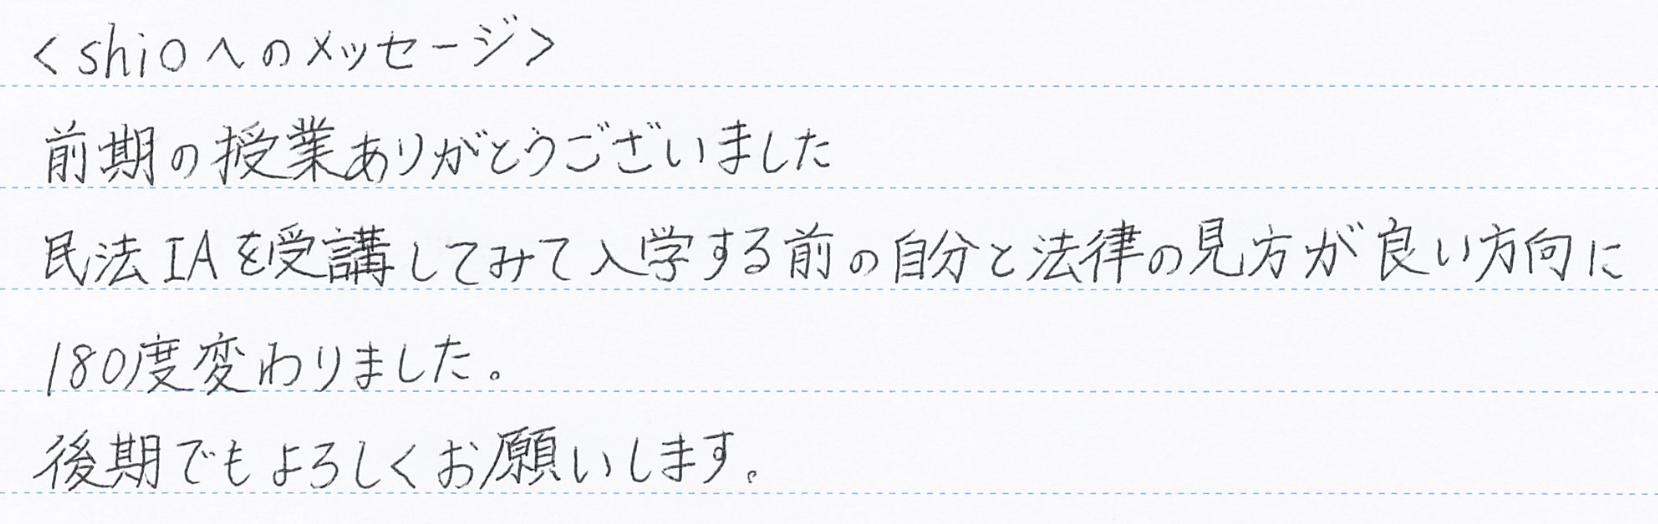 <shioへのメッセージ>
前期の授業ありがとうございました
民法IAを受講してみて入学する前の自分と法律の見方が良い方向に
180度変わりました。
後期でもよろしくお願いします。